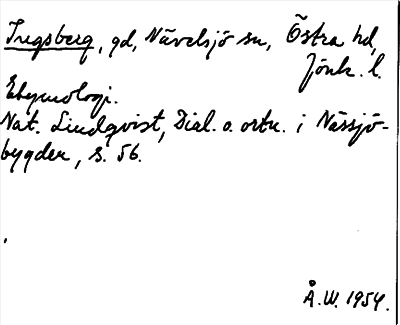 Ingsberg, gd, Nävelsjö sn, Östra hd,
Jönk. l.
Etymologi.
Nat. Lindqvist, Dial. o. ortn. i Nässjö-
bygden, s. 56.
Å.W. 1954.